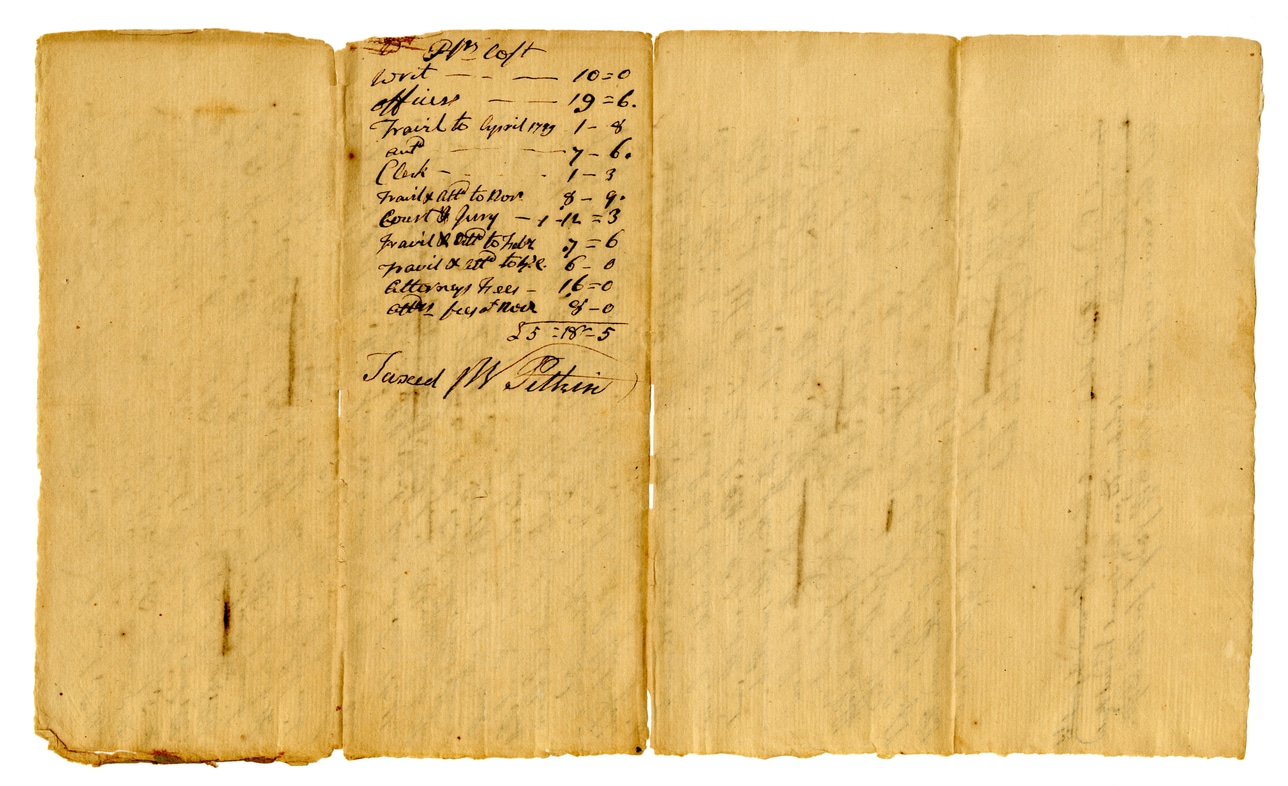 Pffs Cost
Writ — - — 10=0
officers — — 19=6.
Travil to April 1789 1–8
attd — — 7–6.
Clerk – - - 1–3
Travil & Attd to Novr 8–9.
Court & Jury – 1-12=3
Travil & Attd to Febr 7=6
Travil & Attd to 6–0
Attorneys Fees – 16=0
Attrs fees at Novr 8–0
£5=18–5
Taxed pr W Pitkin